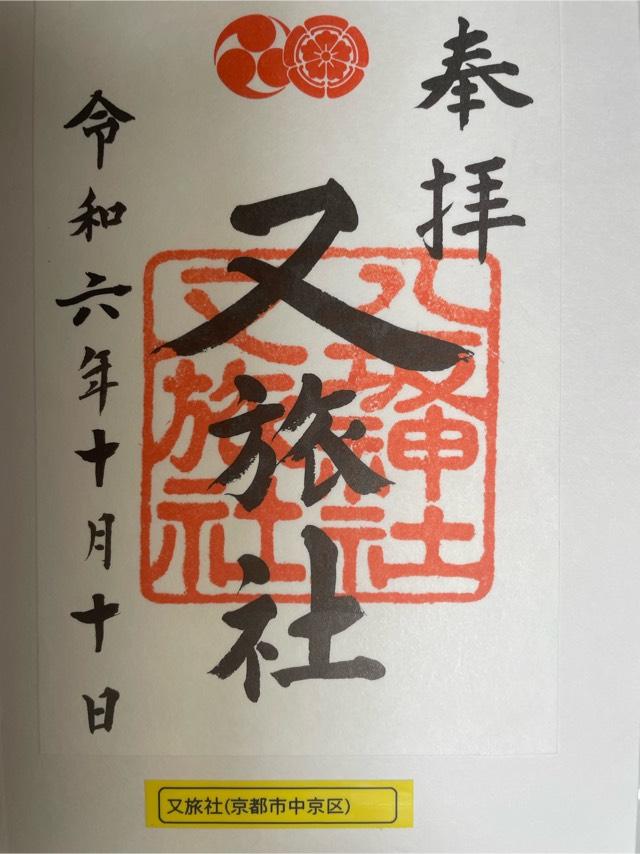 奉拝
又旅社
八坂神社
又旅社
令和六年十月十日
又旅社(京都市中京区)